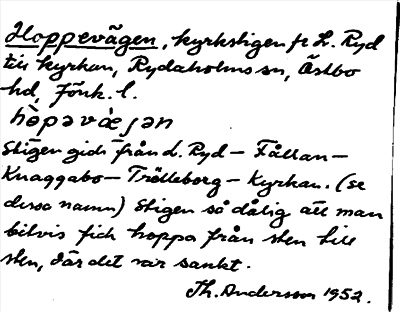 Hoppevägen, kyrkstigen fr L. Ryd
till kyrkan, Rydaholms sn, Östbo
hd, Jönk. l.
hòpəvä̀ɟən
Stigen gick från L. Ryd – Fållan –
Knaggabo – Trälleborg – Kyrkan. (se
dessa namn) Stigen så dålig att man
bitvis fick hoppa från sten till
sten, där det var sankt.
Th. Andersson 1952.